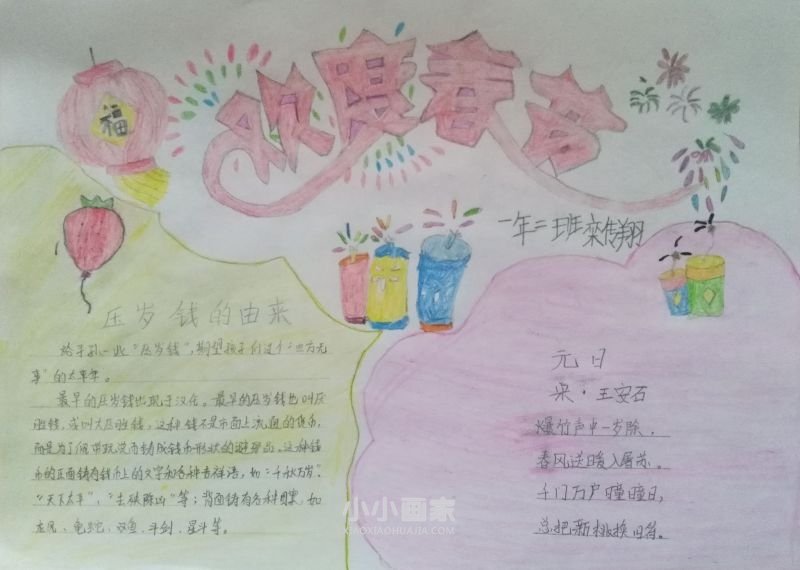 欢度春节
福
一年二班栾传翔
压岁钱的由来
给子孙一些"压岁钱",期望孩子们过个"
事"的太平年。
最早的压岁钱出现于汉代。最早的压岁钱也叫压
胜钱,或叫大压胜钱,这种钱不是市面上流通的货币,
而是为了佩带玩赏而铸成钱币形状的避邪品。这种钱
币的正面铸有钱币上的文字和各种吉祥语,如"千秋万岁"、
"天下太平"、"去殃除凶"等;背面铸有各种图案,如
龙凤、龟蛇、双鱼、斗剑、星斗等。
元日
宋·王安石
爆竹声中一岁除,
春风送暖入屠苏。
千门万户曈曈日,
总把新桃换旧符。
小小画家
XIAOXIAOHUAJIA.COM